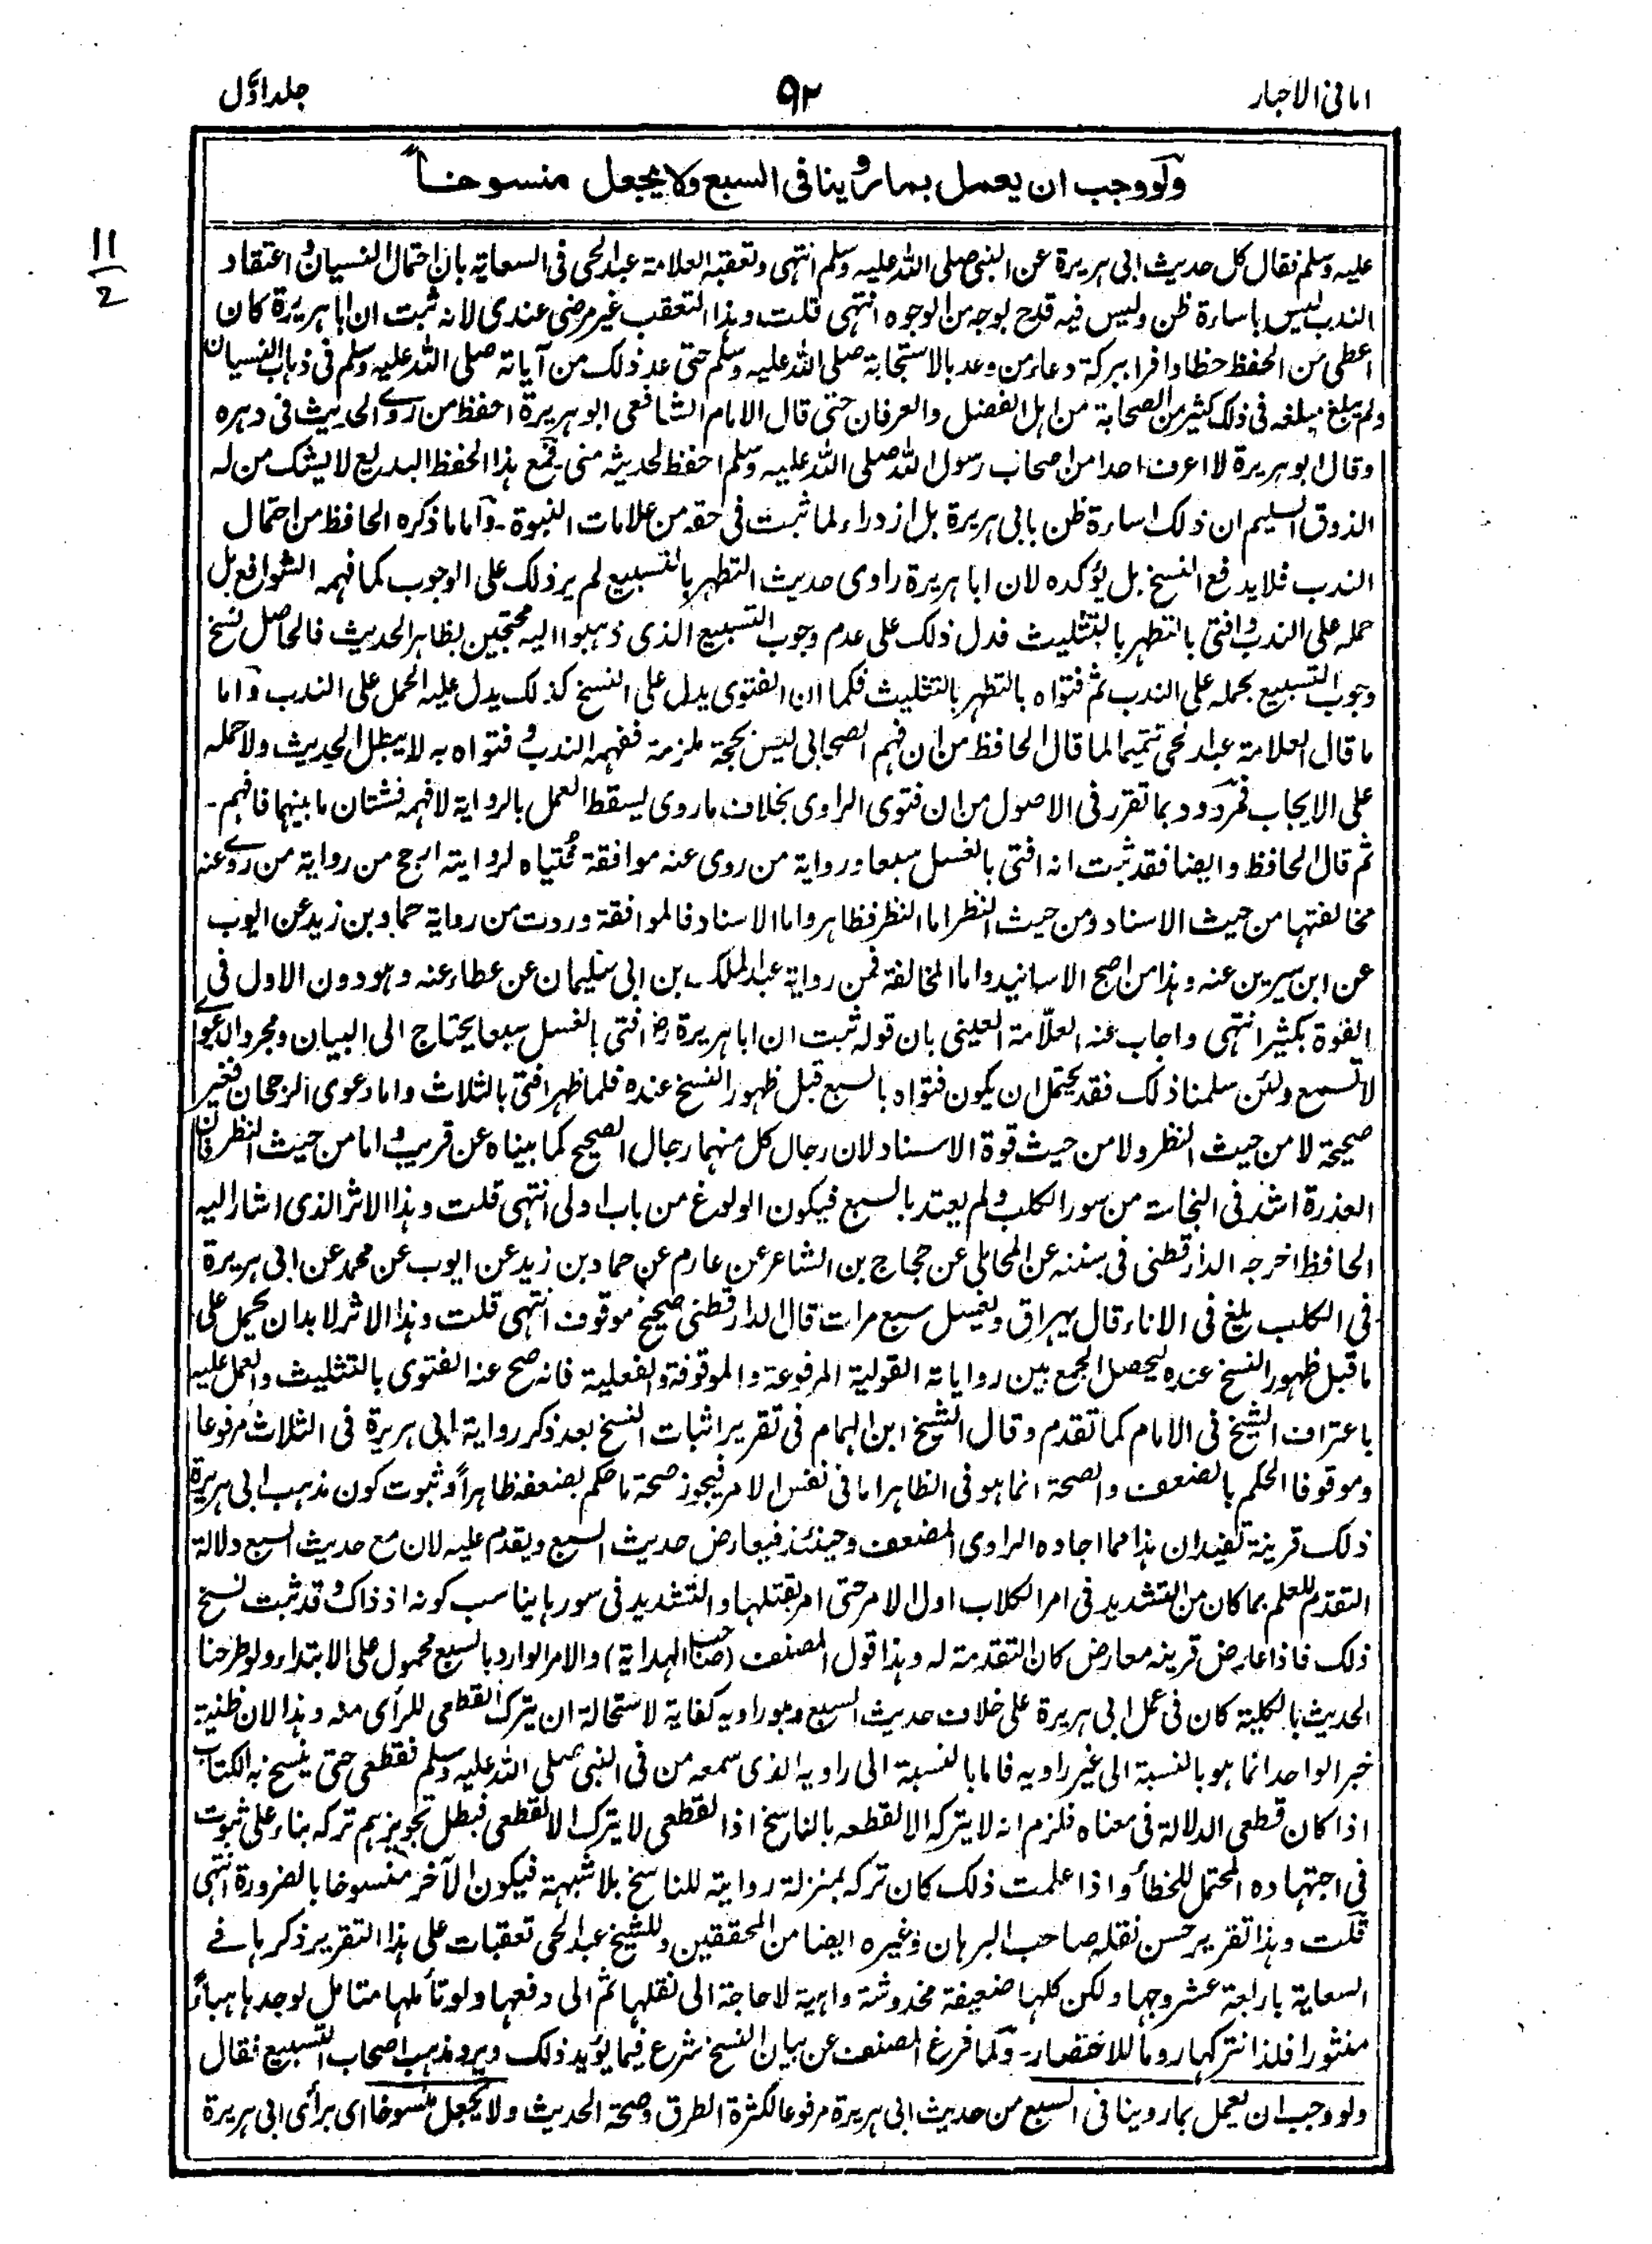 امانی الاحبار
۹۲
جلد اوّل
ولو وجب ان يعمل بما روينا فى السبع ولا يجعل منسوخاً
11
2
عليه وسلم فقال كل حديث ابى هريرة عن النبى صلى الله عليه وسلم انتهى وتعقبه العلامة عبد الحى فى السعاية بان احتمال النسيان و اعتقاد
الندب ليس باساءة ظن وليس فيه قدح بوجه من الوجوه انتهى قلت وهذا التعقب غير مرضى عندى لانه ثبت ان ابا هريرة كان
اعطى من الحفظ حظا وافرا ببركة دعاء من وعد بالاستجابة صلى الله عليه وسلم حتى عد ذلك من آياته صلى الله عليه وسلم فى ذهاب النسيان
ولم يبلغ مبلغه فى ذلك كثير من الصحابة من اهل الفضل والعرفان حتى قال الامام الشافعى ابو هريرة احفظ من روى الحديث فى دهره
وقال ابو هريرة لا اعرف احدا من اصحاب رسول الله صلى الله عليه وسلم احفظ لحديثه منى ۔ فمع هذا الحفظ البديع لا يشك من له
الذوق السليم ان ذلك اساءة ظن بابى هريرة بل ازدراء لما ثبت فى حقه من علامات النبوة ۔ وآما ما ذكره الحافظ من احتمال
الندب فلا يدفع النسخ بل يؤكده لان ابا هريرة راوى حديث التطهر بالتسبيع لم ير ذلك على الوجوب كما فهمه الشوافع بل
حمله على الندب و افتى بالتطهر بالتثليث فدل ذلك على عدم وجوب التسبيع الذى ذهبوا اليه محتجين بظاهر الحديث فالحاصل نسخ
وجوب التسبيع بحمله على الندب ثم فتواه بالتطهر بالتثليث فكما ان الفتوى يدل على النسخ كذلك يدل عليه الحمل على الندب وآما
ما قال العلامة عبد الحى تتميما لما قال الحافظ من ان فهم الصحابى ليس بحجة ملزمة ففهمه الندب و فتواه به لا يبطل الحديث ولا حمله
على الايجاب فمردود بما تقرر فى الاصول من ان فتوى الراوى بخلاف ما روى يسقط العمل بالرواية لا فهمه فشتان ما بينهما فافهم ۔
ثم قال الحافظ وايضا فقد ثبت انه افتى بالغسل سبعا ورواية من روى عنه موافقة فتياه لروايته ارجح من رواية من روى عنه
مخالفتها من حيث الاسناد ومن حيث النظر اما النظر فظاهر واما الاسناد فالموافقة وردت من رواية حماد بن زيد عن ايوب
عن ابن سيرين عنه وهذا من اصح الاسانيد واما المخالفة فمن رواية عبد الملك بن ابى سليمان عن عطاء عنه وهو دون الاول فى
القوة بكثير انتهى واجاب عنه العلّامة العينى بان قوله ثبت ان ابا هريرة رض افتى بالغسل سبعا يحتاج الى البيان ومجرد الدعوى
لا تسمع ولئن سلمنا ذلك فقد يحتمل ان يكون فتواه بالسبع قبل ظهور النسخ عنده فلما ظهر افتى بالثلاث واما دعوى الرجحان فغير
صحيحة لا من حيث النظر ولا من حيث قوة الاسناد لان رجال كل منهما رجال الصحيح كما بيناه عن قريب و اما من حيث النظر فان
العذرة اشد فى النجاسة من سور الكلب و لم يعتد بالسبع فيكون الولوغ من باب اولى انتهى قلت وهذا الاثر الذى اشار اليه
الحافظ اخرجه الدارقطنى فى سننه عن المحاملى عن حجاج بن الشاعر عن عارم عن حماد بن زيد عن ايوب عن محمد عن ابى هريرة
فى الكلب يلغ فى الاناء قال يهراق ويغسل سبع مرات قال الدارقطنى صحيح موقوف انتهى قلت وهذا الاثر لا بد ان يحمل على
ما قبل ظهور النسخ عنده ليحصل الجمع بين رواياته القولية المرفوعة والموقوفة والفعلية فانه صح عنه الفتوى بالتثليث والعمل عليه
باعتراف الشيخ فى الامام كما تقدم وقال الشيخ ابن الهمام فى تقرير اثبات النسخ بعد ذكر رواية ابى هريرة فى الثلاث مرفوعا
وموقوفا الحكم بالضعف والصحة انما هو فى الظاهر اما فى نفس الامر فيجوز صحة ما حكم بضعفه ظاهراً و ثبوت كون مذهب ابى هريرة
ذلك قرينة تفيد ان هذا مما اجاده الراوى المضعف وحينئذ فيعارض حديث السبع ويقدم عليه لان مع حديث السبع دلالة
التقدم للعلم بما كان من التشديد فى امر الكلاب اول الامر حتى امر بقتلها والتشديد فى سورها يناسب كونه اذ ذاك و قد ثبت نسخ
ذلك فاذا عارض قرينه معارض كان التقدمة له وهذا قول المصنف (صاحب الهداية) والامر الوارد بالسبع محمول على الابتداء ولو طرحنا
الحديث بالكلية كان فى عمل ابى هريرة على خلاف حديث السبع وهو راويه كفاية لاستحالة ان يترك القطعى للرأى منه وهذا لان ظنية
خبر الواحد انما هو بالنسبة الى غير راويه فاما بالنسبة الى راويه الذى سمعه من فى النبى صلى الله عليه وسلم فقطعى حتى ينسخ به الكتاب
اذا كان قطعى الدلالة فى معناه فلزم انه لا يتركه الا لقطعه بالناسخ اذ القطعى لا يترك الا لقطعى فبطل تجويزهم تركه بناء على ثبوت
فى اجتهاده المحتمل للخطأ و اذا علمت ذلك كان تركه بمنزلة روايته للناسخ بلا شبهة فيكون الآخر منسوخا بالضرورة انتهى
قلت وهذا تقرير حسن نقله صاحب البرهان وغيره ايضا من المحققين وللشيخ عبد الحى تعقبات على هذا التقرير ذكرها فى
السعاية باربعة عشر وجها ولكن كلها ضعيفة مخدوشة واهية لا حاجة الى نقلها ثم الى دفعها ولو تأملها متامل لوجدها هباءً
منثورا فلذا نتركها روما للاختصار ۔ ولما فرغ المصنف عن بيان النسخ شرع فيما يؤيد ذلك ويرد مذهب اصحاب التسبيع فقال
ولو وجب ان يعمل بما روينا فى السبع من حديث ابى هريرة مرفوعا لكثرة الطرق وصحة الحديث ولا يجعل منسوخا اى برأى ابى هريرة